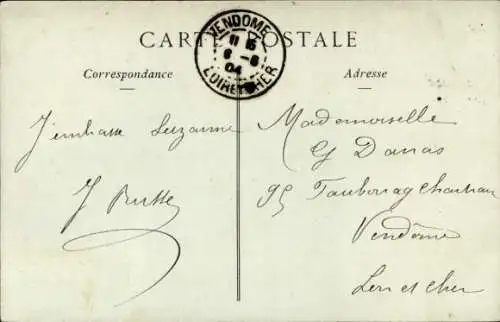 CARTE POSTALE
VENDOME
11 15
6 -8
04
LOIR ET CHER
Correspondance
Adresse
J'embrasse Suzanne
Mademoiselle
G Danas
95 Faubourg Chartrain
Vendôme
Loir et Cher